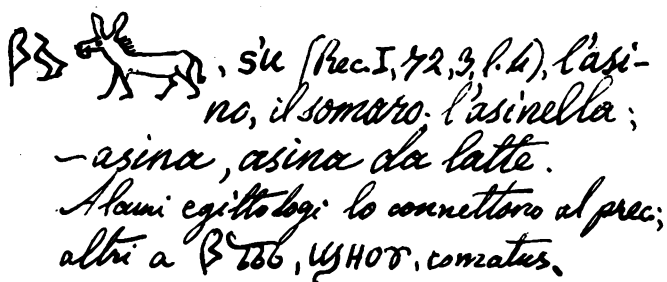 , s'u (Rec. I, 72, 3, l. 4), l'asi-
no, il somaro; l'asinella;
– asina, asina da latte.
Alcuni egittologi lo connettono al prec;
altri a , comatus.